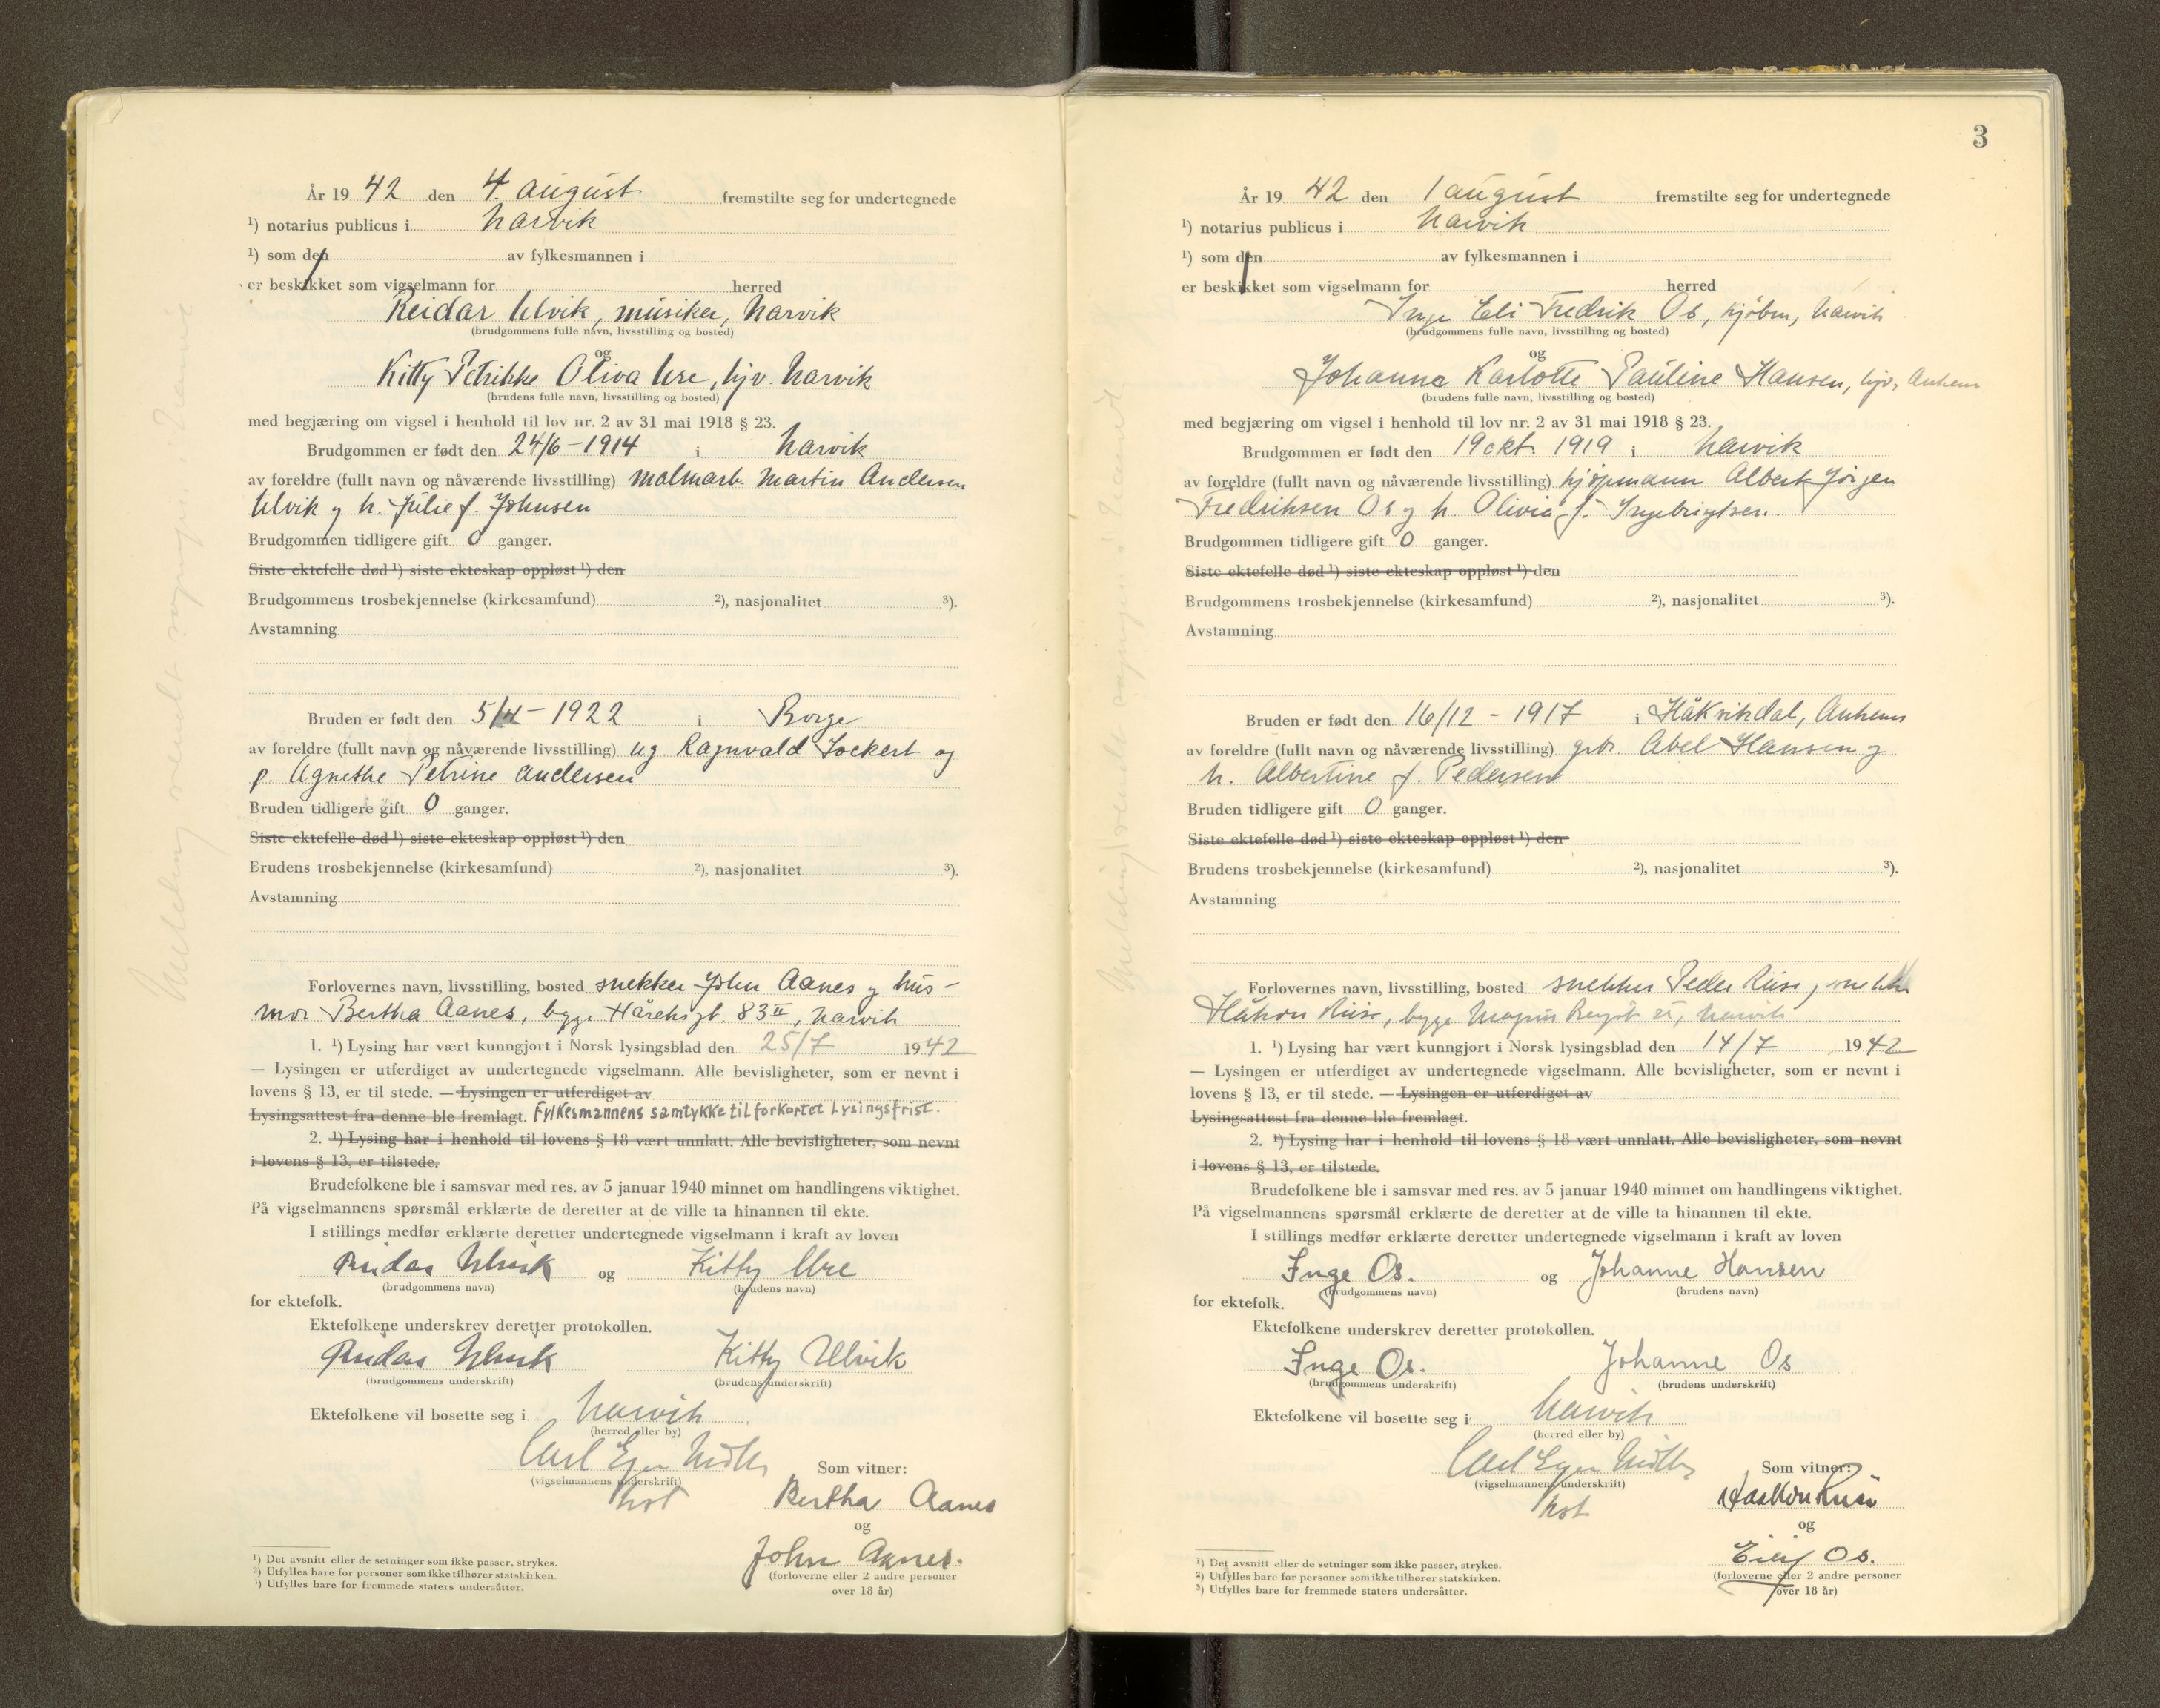 År 19 42 den 4. august fremstilte seg for undertegnede
¹) notarius publicus i Narvik
¹) som den av fylkesmannen i
er beskikket som vigselmann for herred
Reidar Ulvik, musiker, Narvik
(brudgommens fulle navn, livsstilling og bosted)
og
Kitty Petrikke Oliva Ure, hjv. Narvik
(brudens fulle navn, livsstilling og bosted)
med begjæring om vigsel i henhold til lov nr. 2 av 31 mai 1918 § 23.
Brudgommen er født den 24/6 - 1914 i Narvik
av foreldre (fullt navn og nåværende livsstilling) malmarb. Martin Andersen
Ulvik og h. Julie f. Johnsen
Brudgommen tidligere gift 0 ganger.
Siste ektefelle død ¹) siste ekteskap oppløst ¹) den
Brudgommens trosbekjennelse (kirkesamfund) ²), nasjonalitet ³).
Avstamning
Bruden er født den 5/ - 1922 i Borge
av foreldre (fullt navn og nåværende livsstilling) ug. Ragnvald Lockert og
p. Agnethe Petrine Andersen
Bruden tidligere gift 0 ganger.
Siste ektefelle død ¹) siste ekteskap oppløst ¹) den
Brudens trosbekjennelse (kirkesamfund) ²), nasjonalitet ³).
Avstamning
Forlovernes navn, livsstilling, bosted snekker John Aanes og hus-
mor Bertha Aanes, begge 83 II, Narvik
1. ¹) Lysing har vært kunngjort i Norsk lysingsblad den 25/7 1942
— Lysingen er utferdiget av undertegnede vigselmann. Alle bevisligheter, som er nevnt i
lovens § 13, er til stede. — Lysingen er utferdiget av
Lysingsattest fra denne ble fremlagt. Fylkesmannens samtykke til forkortet Lysingsfrist.
2. ¹) Lysing har i henhold til lovens § 18 vært unnlatt. Alle bevisligheter, som nevnt
i lovens § 13, er tilstede.
Brudefolkene ble i samsvar med res. av 5 januar 1940 minnet om handlingens viktighet.
På vigselmannens spørsmål erklærte de deretter at de ville ta hinannen til ekte.
I stillings medfør erklærte deretter undertegnede vigselmann i kraft av loven
Reidar Ulvik og Kitty Ure
(brudgommens navn) (brudens navn)
for ektefolk.
Ektefolkene underskrev deretter protokollen.
Reidar Ulvik Kitty Ulvik
(brudgommens underskrift) (brudens underskrift)
Ektefolkene vil bosette seg i Narvik
(herred eller by)
Carl
(vigselmannens underskrift) Som vitner:
kst Bertha Aanes
og
John Aanes.
(forloverne eller 2 andre personer
over 18 år)
¹) Det avsnitt eller de setninger som ikke passer, strykes.
²) Utfylles bare for personer som ikke tilhører statskirken.
³) Utfylles bare for fremmede staters undersåtter.
3
År 19 42 den 1 august fremstilte seg for undertegnede
¹) notarius publicus i Narvik
¹) som den av fylkesmannen i
er beskikket som vigselmann for herred
Inge Eli Fredrik Os, kjøbm, Narvik
(brudgommens fulle navn, livsstilling og bosted)
og
Johanna Karlotte Pauline Hansen, hjv, Ankenes
(brudens fulle navn, livsstilling og bosted)
med begjæring om vigsel i henhold til lov nr. 2 av 31 mai 1918 § 23.
Brudgommen er født den 19 okt. 1919 i Narvik
av foreldre (fullt navn og nåværende livsstilling) kjøpmann Albert Jørgen
Fredriksen Os og h. Olivia f. Ingebrigtsen.
Brudgommen tidligere gift 0 ganger.
Siste ektefelle død ¹) siste ekteskap oppløst ¹) den
Brudgommens trosbekjennelse (kirkesamfund) ²), nasjonalitet ³).
Avstamning
Bruden er født den 16/12 - 1917 i Håkvikdal, Ankenes
av foreldre (fullt navn og nåværende livsstilling) gbr. Abel Hansen og
h. Albertine f. Pedersen
Bruden tidligere gift 0 ganger.
Siste ektefelle død ¹) siste ekteskap oppløst ¹) den
Brudens trosbekjennelse (kirkesamfund) ²), nasjonalitet ³).
Avstamning
Forlovernes navn, livsstilling, bosted snekker Peder Riise,
Håkon Riise, begge Narvik
1. ¹) Lysing har vært kunngjort i Norsk lysingsblad den 14/7 1942
— Lysingen er utferdiget av undertegnede vigselmann. Alle bevisligheter, som er nevnt i
lovens § 13, er til stede. — Lysingen er utferdiget av
Lysingsattest fra denne ble fremlagt.
2. ¹) Lysing har i henhold til lovens § 18 vært unnlatt. Alle bevisligheter, som nevnt
i lovens § 13, er tilstede.
Brudefolkene ble i samsvar med res. av 5 januar 1940 minnet om handlingens viktighet.
På vigselmannens spørsmål erklærte de deretter at de ville ta hinannen til ekte.
I stillings medfør erklærte deretter undertegnede vigselmann i kraft av loven
Inge Os. og Johanne Hansen
(brudgommens navn) (brudens navn)
for ektefolk.
Ektefolkene underskrev deretter protokollen.
Inge Os. Johanne Os
(brudgommens underskrift) (brudens underskrift)
Ektefolkene vil bosette seg i Narvik
(herred eller by)
Carl
(vigselmannens underskrift) Som vitner:
kst Haakon Riise
og
Eilif Os.
(forloverne eller 2 andre personer
over 18 år)
¹) Det avsnitt eller de setninger som ikke passer, strykes.
²) Utfylles bare for personer som ikke tilhører statskirken.
³) Utfylles bare for fremmede staters undersåtter.